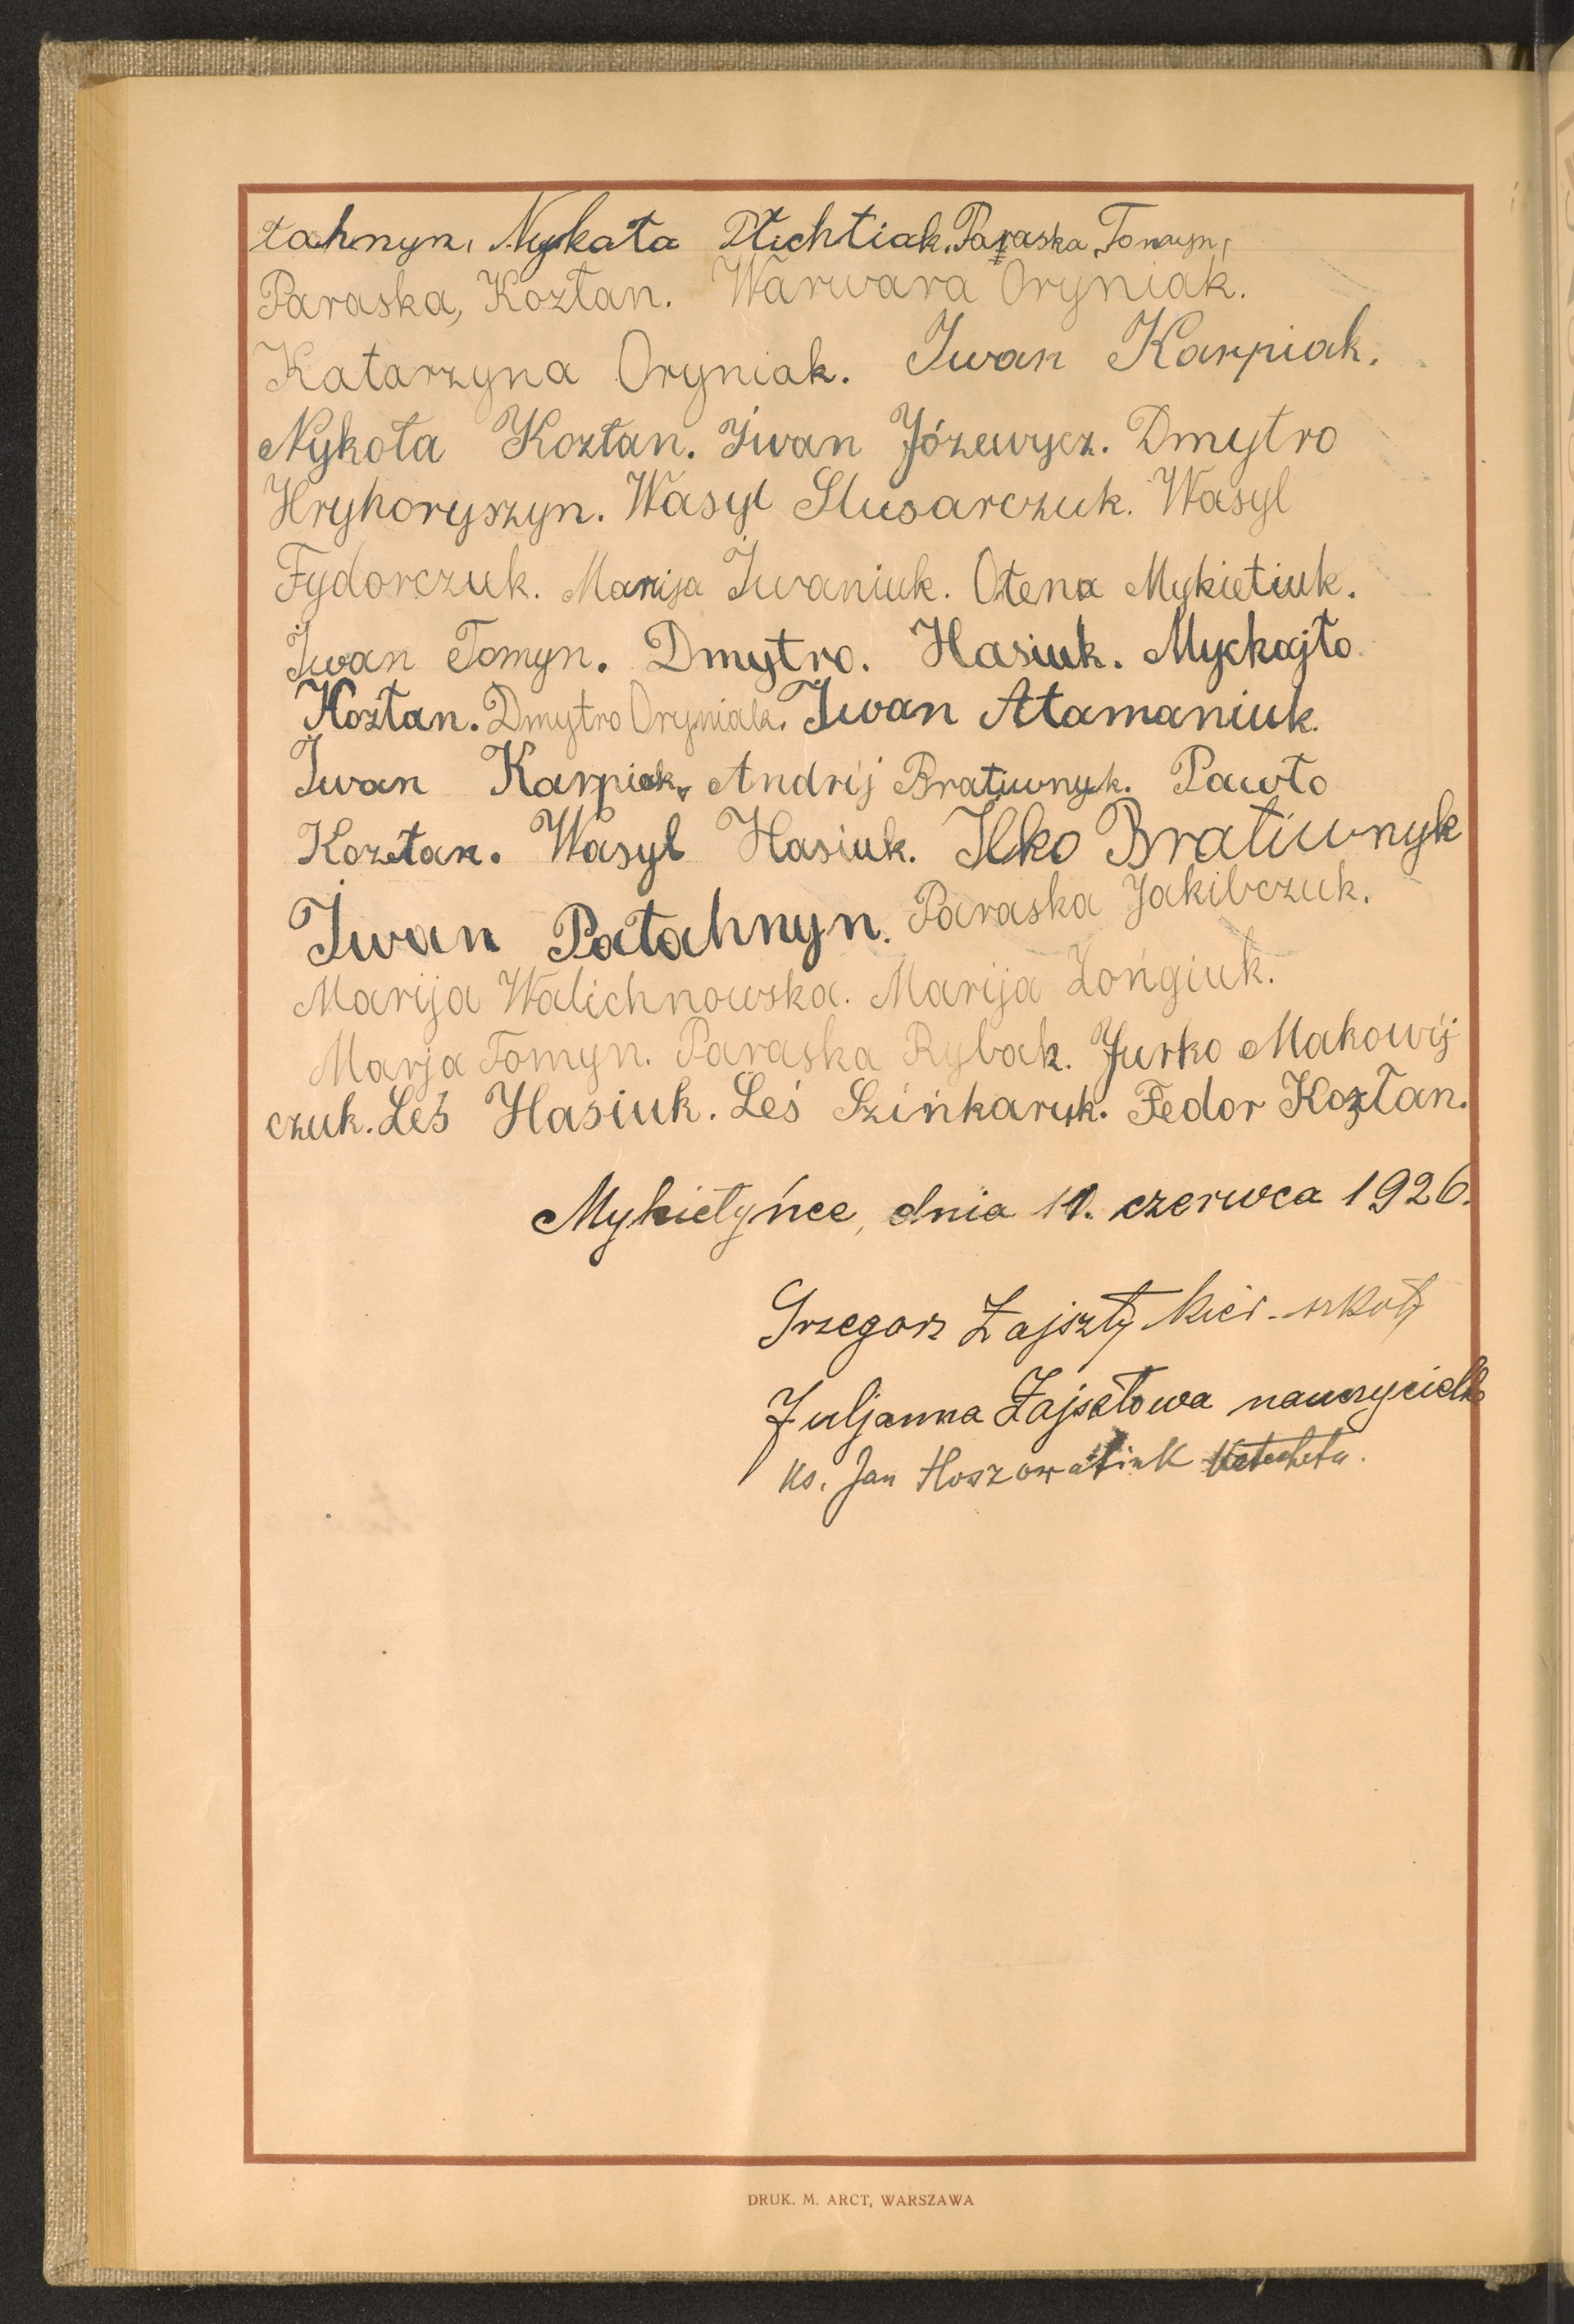 łahnyn, Nykoła Plichtiak, Paraska Tomyn,
Paraska, Kozłan. Warwara Oryniak.
Katarzyna Oryniak. Iwan Karpiak.
Nykoła Kozłan. Iwan Józewycz. Dmytro
Hryhoryszyn. Wasyl Slusarczuk. Wasyl
Fydorczuk. Marija Iwaniuk. Ołena Mykietiuk.
Iwan Tomyn. Dmytro. Hasiuk. Myckajło
Kozłan. Dmytro Oryniak. Iwan Atamaniuk.
Iwan Karpiak, Andrij Bratiwnyk. Pawło
Kozłan. Wasyl Hasiuk. Ilko Bratiwnyk
Iwan Pałahnyn. Paraska Jakibczuk.
Marija Walichnowska. Marija Łongiuk.
Marja Tomyn. Paraska Rybak. Jurko Makowij
czuk. Leś Hasiuk. Leś Szinkaruk. Fedor Kozłan.
Mykietyńce, dnia 10. czerwca 1926.
Grzegorz Zajszły kier. szkoły
Juljanna Zajszłowa nauczycielka
Ks. Jan Hoszowatiuk Katecheta.
DRUK. M. ARCT, WARSZAWA